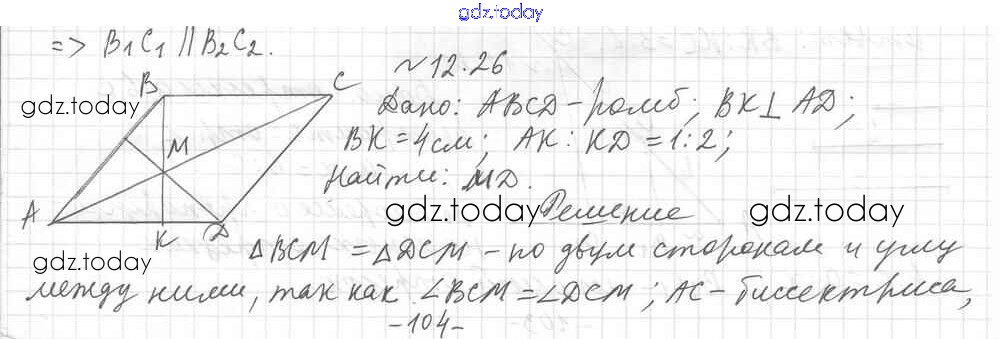 gdz.today
=> B₁C₁ || B₂C₂.
№12.26
B C
gdz.today
Дано: ABCD - ромб; BK⊥AD;
BK = 4см; AK : KD = 1:2;
M
Найти: MD.
A K D
gdz.today Решение gdz.today
gdz.today
△BCM = △DCM - по двум сторонам и углу
между ними, так как ∠BCM = ∠DCM; AC - биссектриса,
-104-